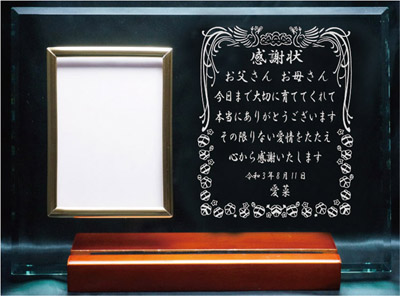 感謝状
お父さん お母さん
今日まで大切に育ててくれて
本当にありがとうございます
その限りない愛情をたたえ
心から感謝いたします
令和3年8月11日
愛菜